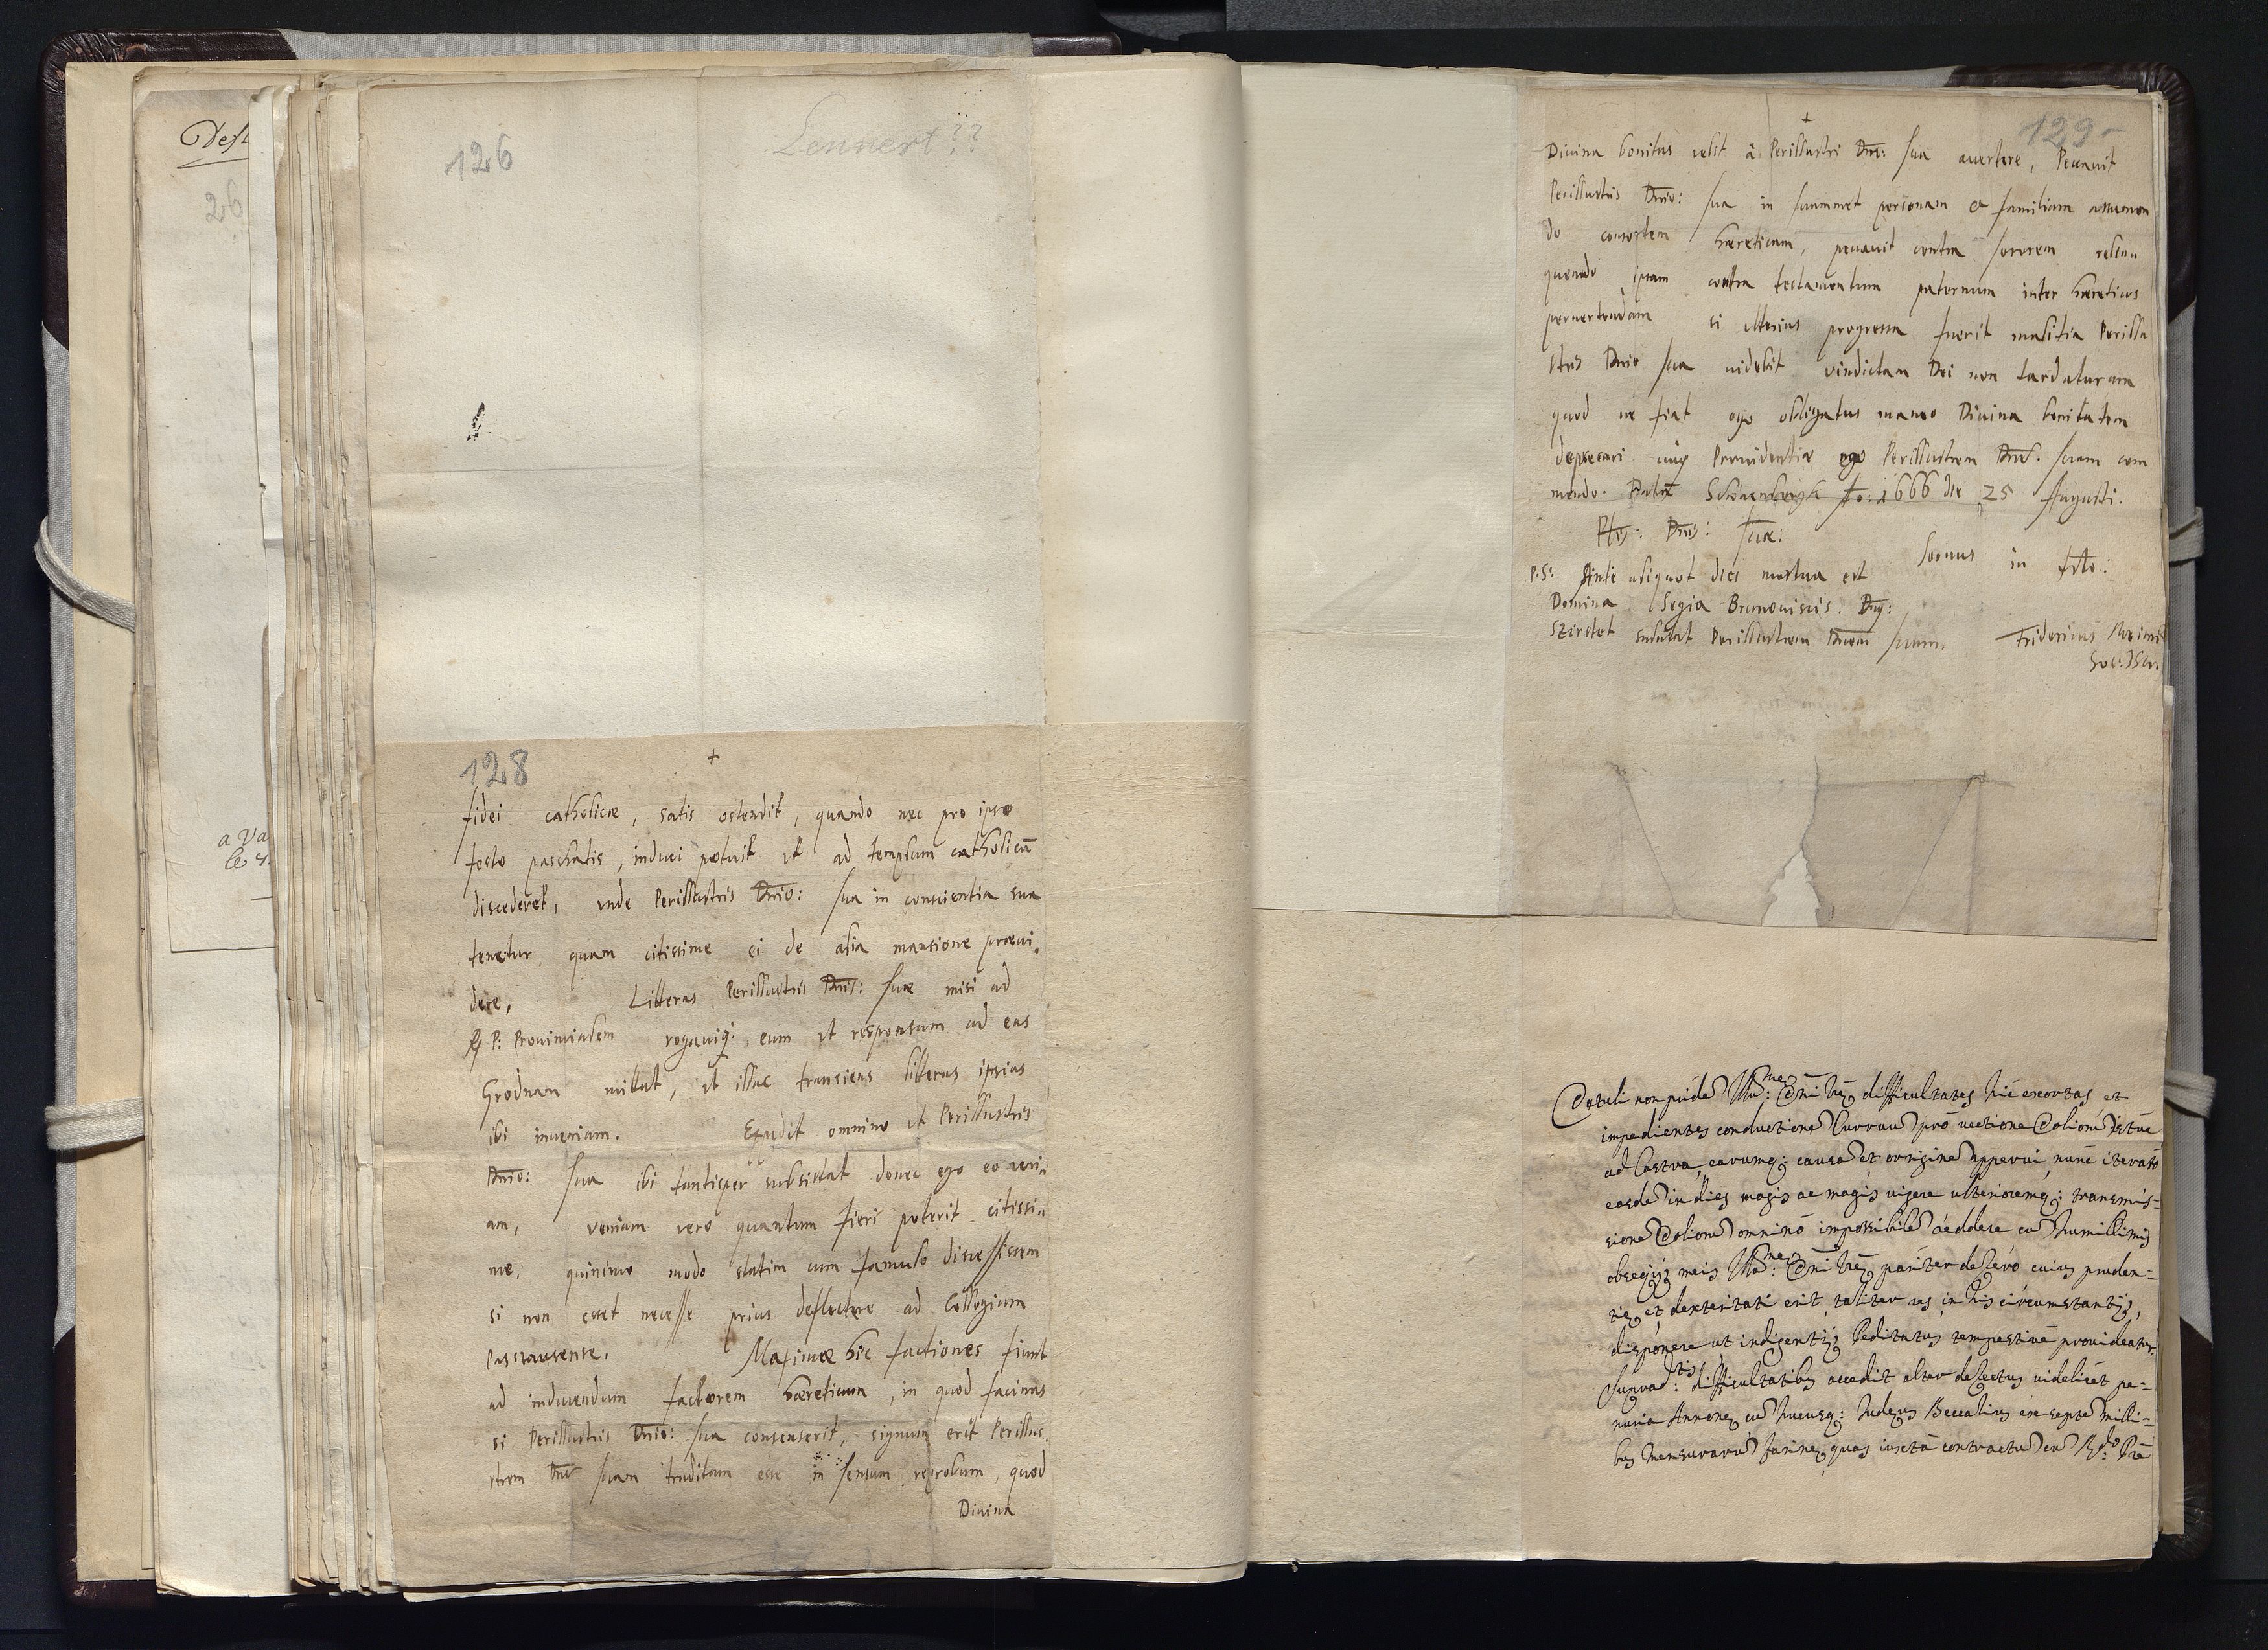 Dest
26
a Va
le s.
126
Lennert??
128
+
fidei catholicæ, satis ostendit, quando nec pro ipso
festo paschatis, induci potuit ut ad templum catholicū
discederet, unde Perillustris Dnio: sua in conscientia sua
tenetur quam citissime ei de alia mansione prævi.
dere. Litteras Perillustris Dnis: suæ misi ad
R P: Provincialem rogaviq: eum ut responsum ad eas
Grodnam mittat, ut illac transiens litteras ipsius
ibi inveniam. Expedit omnino ut Perillustris
Dnio: sua ibi tantisper subsistat donec ego eo veni
am, veniam vero quantum fieri poterit citissi
me, quinimo modo statim cum famulo discessissem
si non esset necesse prius deflectere ad Collegium
Maximæ hic factiones fiunt
ad inducendum factorem hæreticum, in quod facinus
si Perillustris Dnio: sua consenserit, signum erit Perillus.
strem Dnē suam traditam esse in sensum reprobum, quod
Divina
129
+
Divina bonitas velit à Perillustri Dne: sua avertere, Peccavit
Perillustris Dnio: sua in suammet personam & familiam assumen
do consortem hæreticam, peccavit contra sororem relin
quendo ipsam contra testamentum paternum inter hæreticos
pervertendam si ulterius progressa fuerit malitia Perillu
stris Dnio sua videbit vindictam Dei non tardaturam
quod ne fiat ego obligatus maneo Divinam bonitatem
deprecari cuiq Providentiæ ego Perillustrem Dnē. suam com
mendo. Datæ 1666 die 25 Augusti.
Plis: Dnis: suæ:
Servus in Xto:
P.S: Ante aliquot dies mortua est
Domina Segia Brunoviscis. Dny:
Szirstet salutat Perillustrem Dnem suam.
Fridericus
Soc: Jesu:
Detuli non pridē Illu:mæ Dni Vræ difficultates hic exortas et
impedientes conductionē Curruū pro vectione Doliorū istuc
ad Castra, earumq; causā et originē apperui, nunc iterato
easdē in dies magis ac magis vigere ulterioremq; transmis-
sionē Doliorū omnino impossibilē reddere cū humillimis
obseqijs meis Illu:mæ Dni Vræ pariter defero cuius pruden-
tiæ et dexteritati erit, taliter res in his circumstantijs,
disponere ut indigentijs Peditatus tempestive provideatur.
Suprad:tis difficultatibus accedit alter defectus videlicet pe-
nuria Annonæ cū hucusq: Judæus Beccalius ex septē milli-
bus mensurarū farinæ, quas iuxta contractū cū R:do Pre